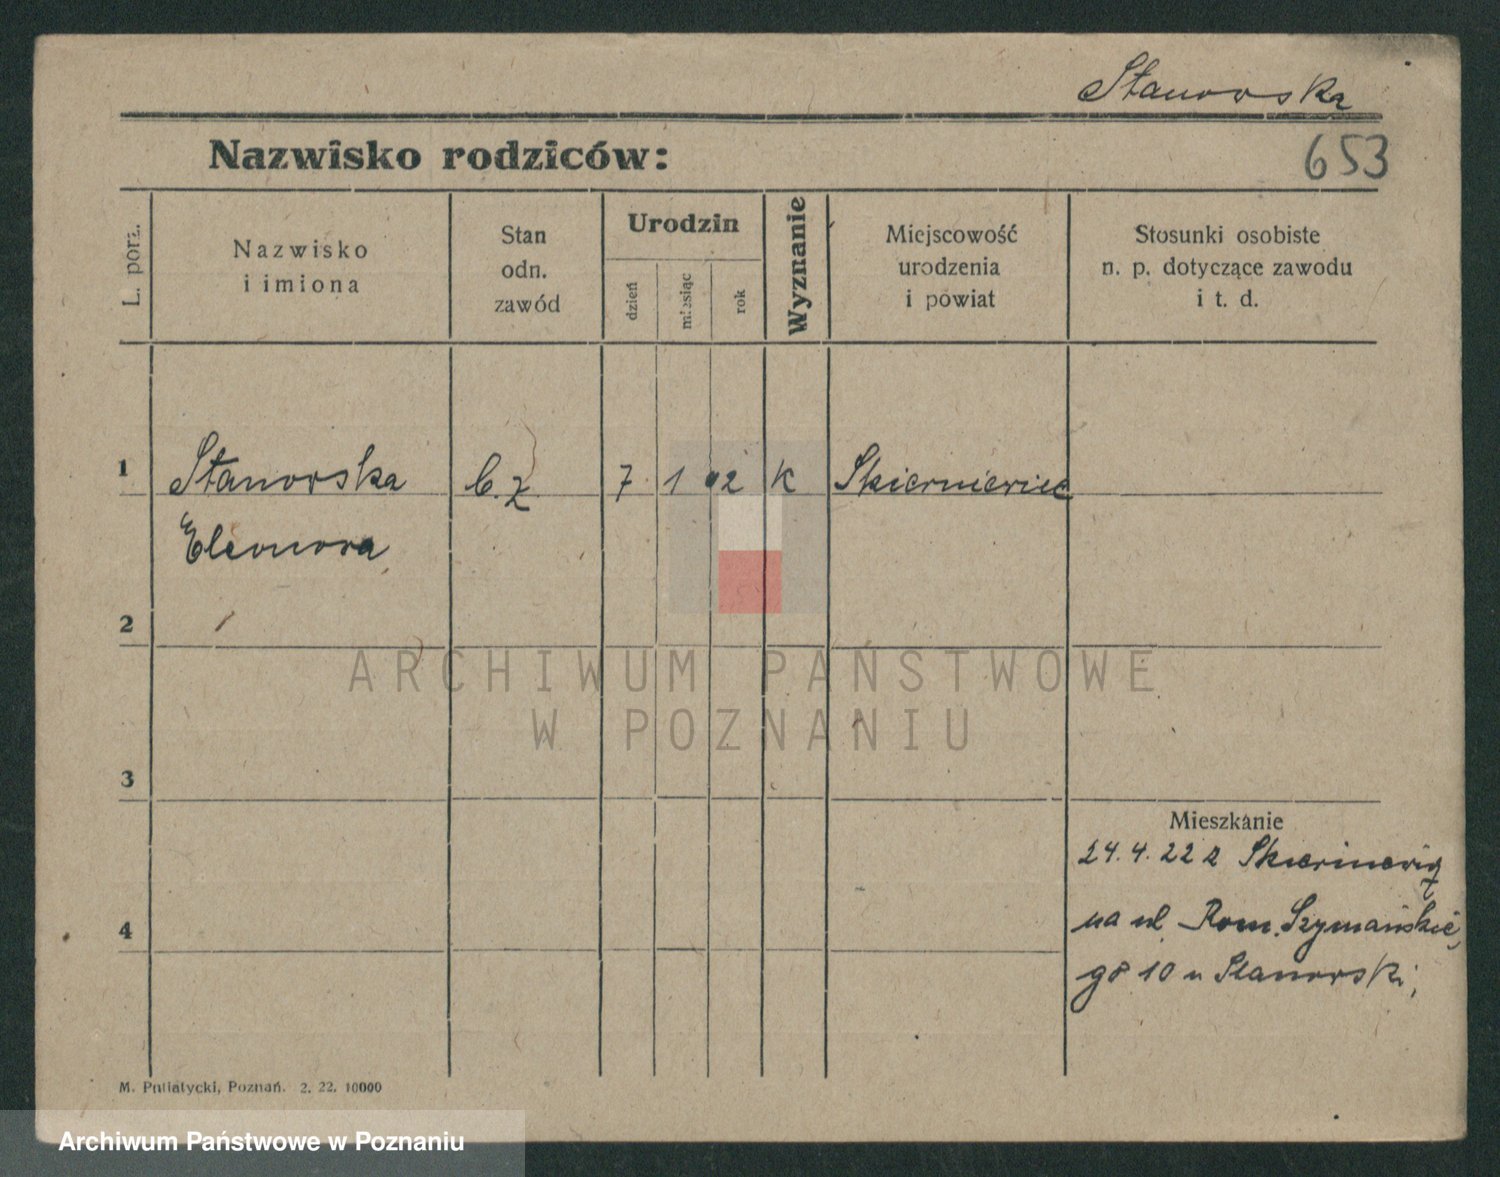 Stanowska
Nazwisko rodziców:
653
L. porz.
Nazwisko
i imiona
Stan
odn.
zawód
Urodzin
dzień
miesiąc
rok
Wyznanie
Miejscowość
urodzenia
i powiat
Stosunki osobiste
n. p. dotyczące zawodu
i t. d.
1 Stanowska b. z 7 1 02 K Skierniewice
Eleonora
2
ARCHIWUM PAŃSTWOWE
W POZNANIU
3
Mieszkanie
24. 4. 22 z Skierniewic
4
na ul. Rom. Szymańskie
go 10 u Stanowski
M. Putiatycki, Poznań. 2. 22. 10000
Archiwum Państwowe w Poznaniu